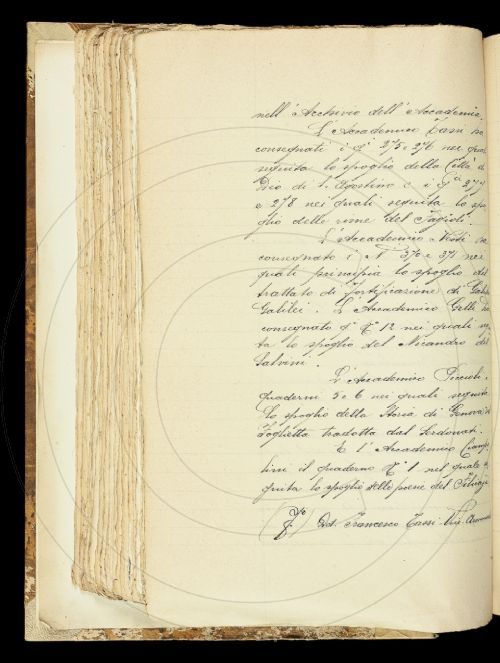 nell'Archivio dell'Accademia.
L'Accademico Zassi ha
consegnati i qi 275 e 276 nei quali
seguita lo spoglio della Città di
Dio di S. Agostino e i qi 277
e 278 nei quali seguita lo spo
glio delle rime del Fagioli.
L'Accademico Nesti ha
consegnato i N 370 e 371 nei
quali principia lo spoglio del
trattato di fortificazione di Galileo
Galilei. L'Accademico Gelli ha
consegnato qo 12 nei quali
ta lo spoglio del Nicandro del
Salvini.
L'Accademico Piccioli,
quaderni 5 e 6 nei quali seguita
lo spoglio della Storia di Genova di
Foglietta tradotta dal Serdonati.
E l'Accademico Ciampo
lini il quaderno 1 nel quale
guita lo spoglio delle poesie del Filicaja
Dot. Francesco Tassi